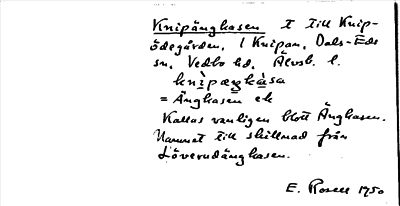 Knipängkasen t till Knip-
ödegården, l Knipan, Dals-Eds
sn, Vedbo hd, Älvsb. l.
knìpæŋkàsa
= Ängkasen ek
Kallas vanligen blott Ängkasen.
Namnet till skillnad från
Löverudängkasen.
E. Rosell 1950